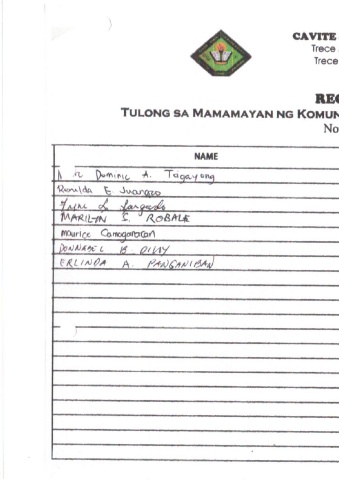 CAVITE
Trece
Trece
REG
TULONG SA MAMAMAYAN NG KOMUN
No
NAME
Dominic A. Tagayong
E. Juanazo
MARILYN S. ROBALE
Maurice
DONNABEL B DILAY
ERLINDA A. PANGANIBAN